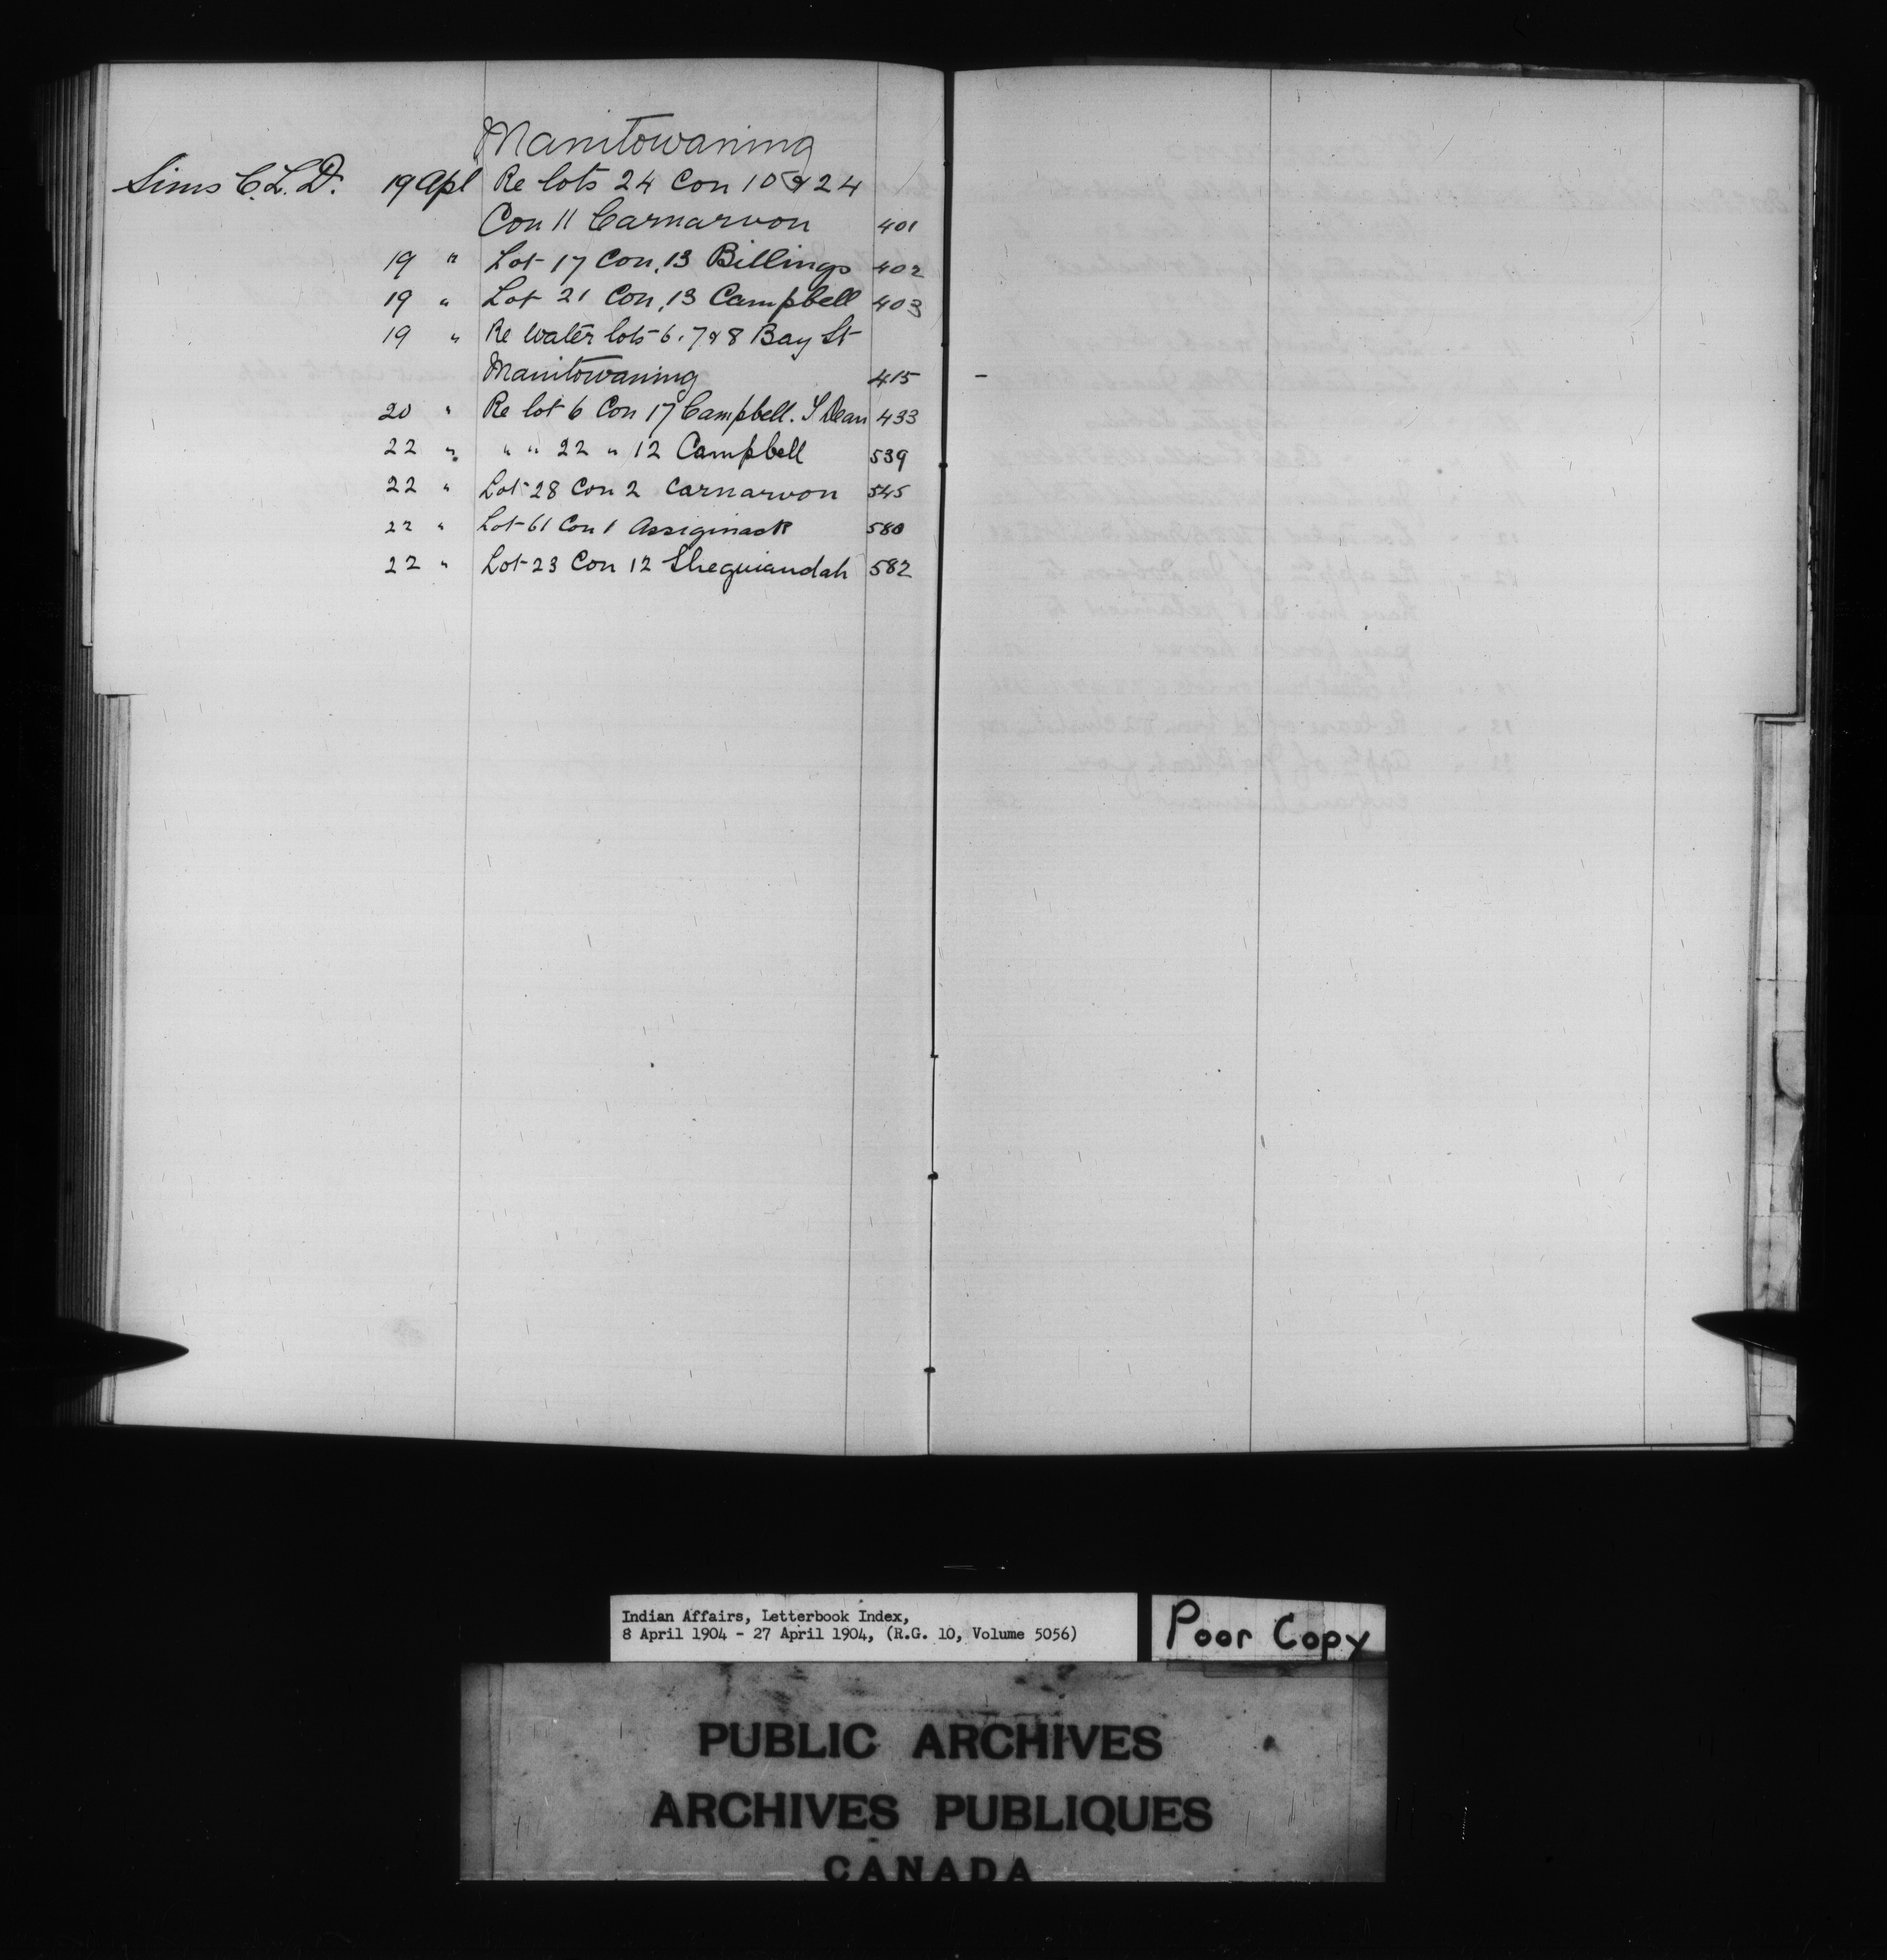 Manitowaning
Sims C.L.D. 19 Apl Re lots 24 Con 10 & 24
Con 11 Carnarvon 401
19 " Lot 17 Con. 13 Billings 402
19 " Lot 21 Con. 13 Campbell 403
19 " Re Water lots 6. 7 & 8 Bay St
Manitowaning 415
20 " Re lot 6 Con 17 Campbell. S Dean 433
22 " " " 22 " 12 Campbell 539
22 " Lot 28 Con 2 Carnarvon 545
22 " Lot 61 Con 1 Assiginack 580
22 " Lot 23 Con 12 Sheguiandah 582
Indian Affairs, Letterbook Index,
8 April 1904 - 27 April 1904, (R.G. 10, Volume 5056)
Poor Copy
PUBLIC ARCHIVES
ARCHIVES PUBLIQUES
CANADA